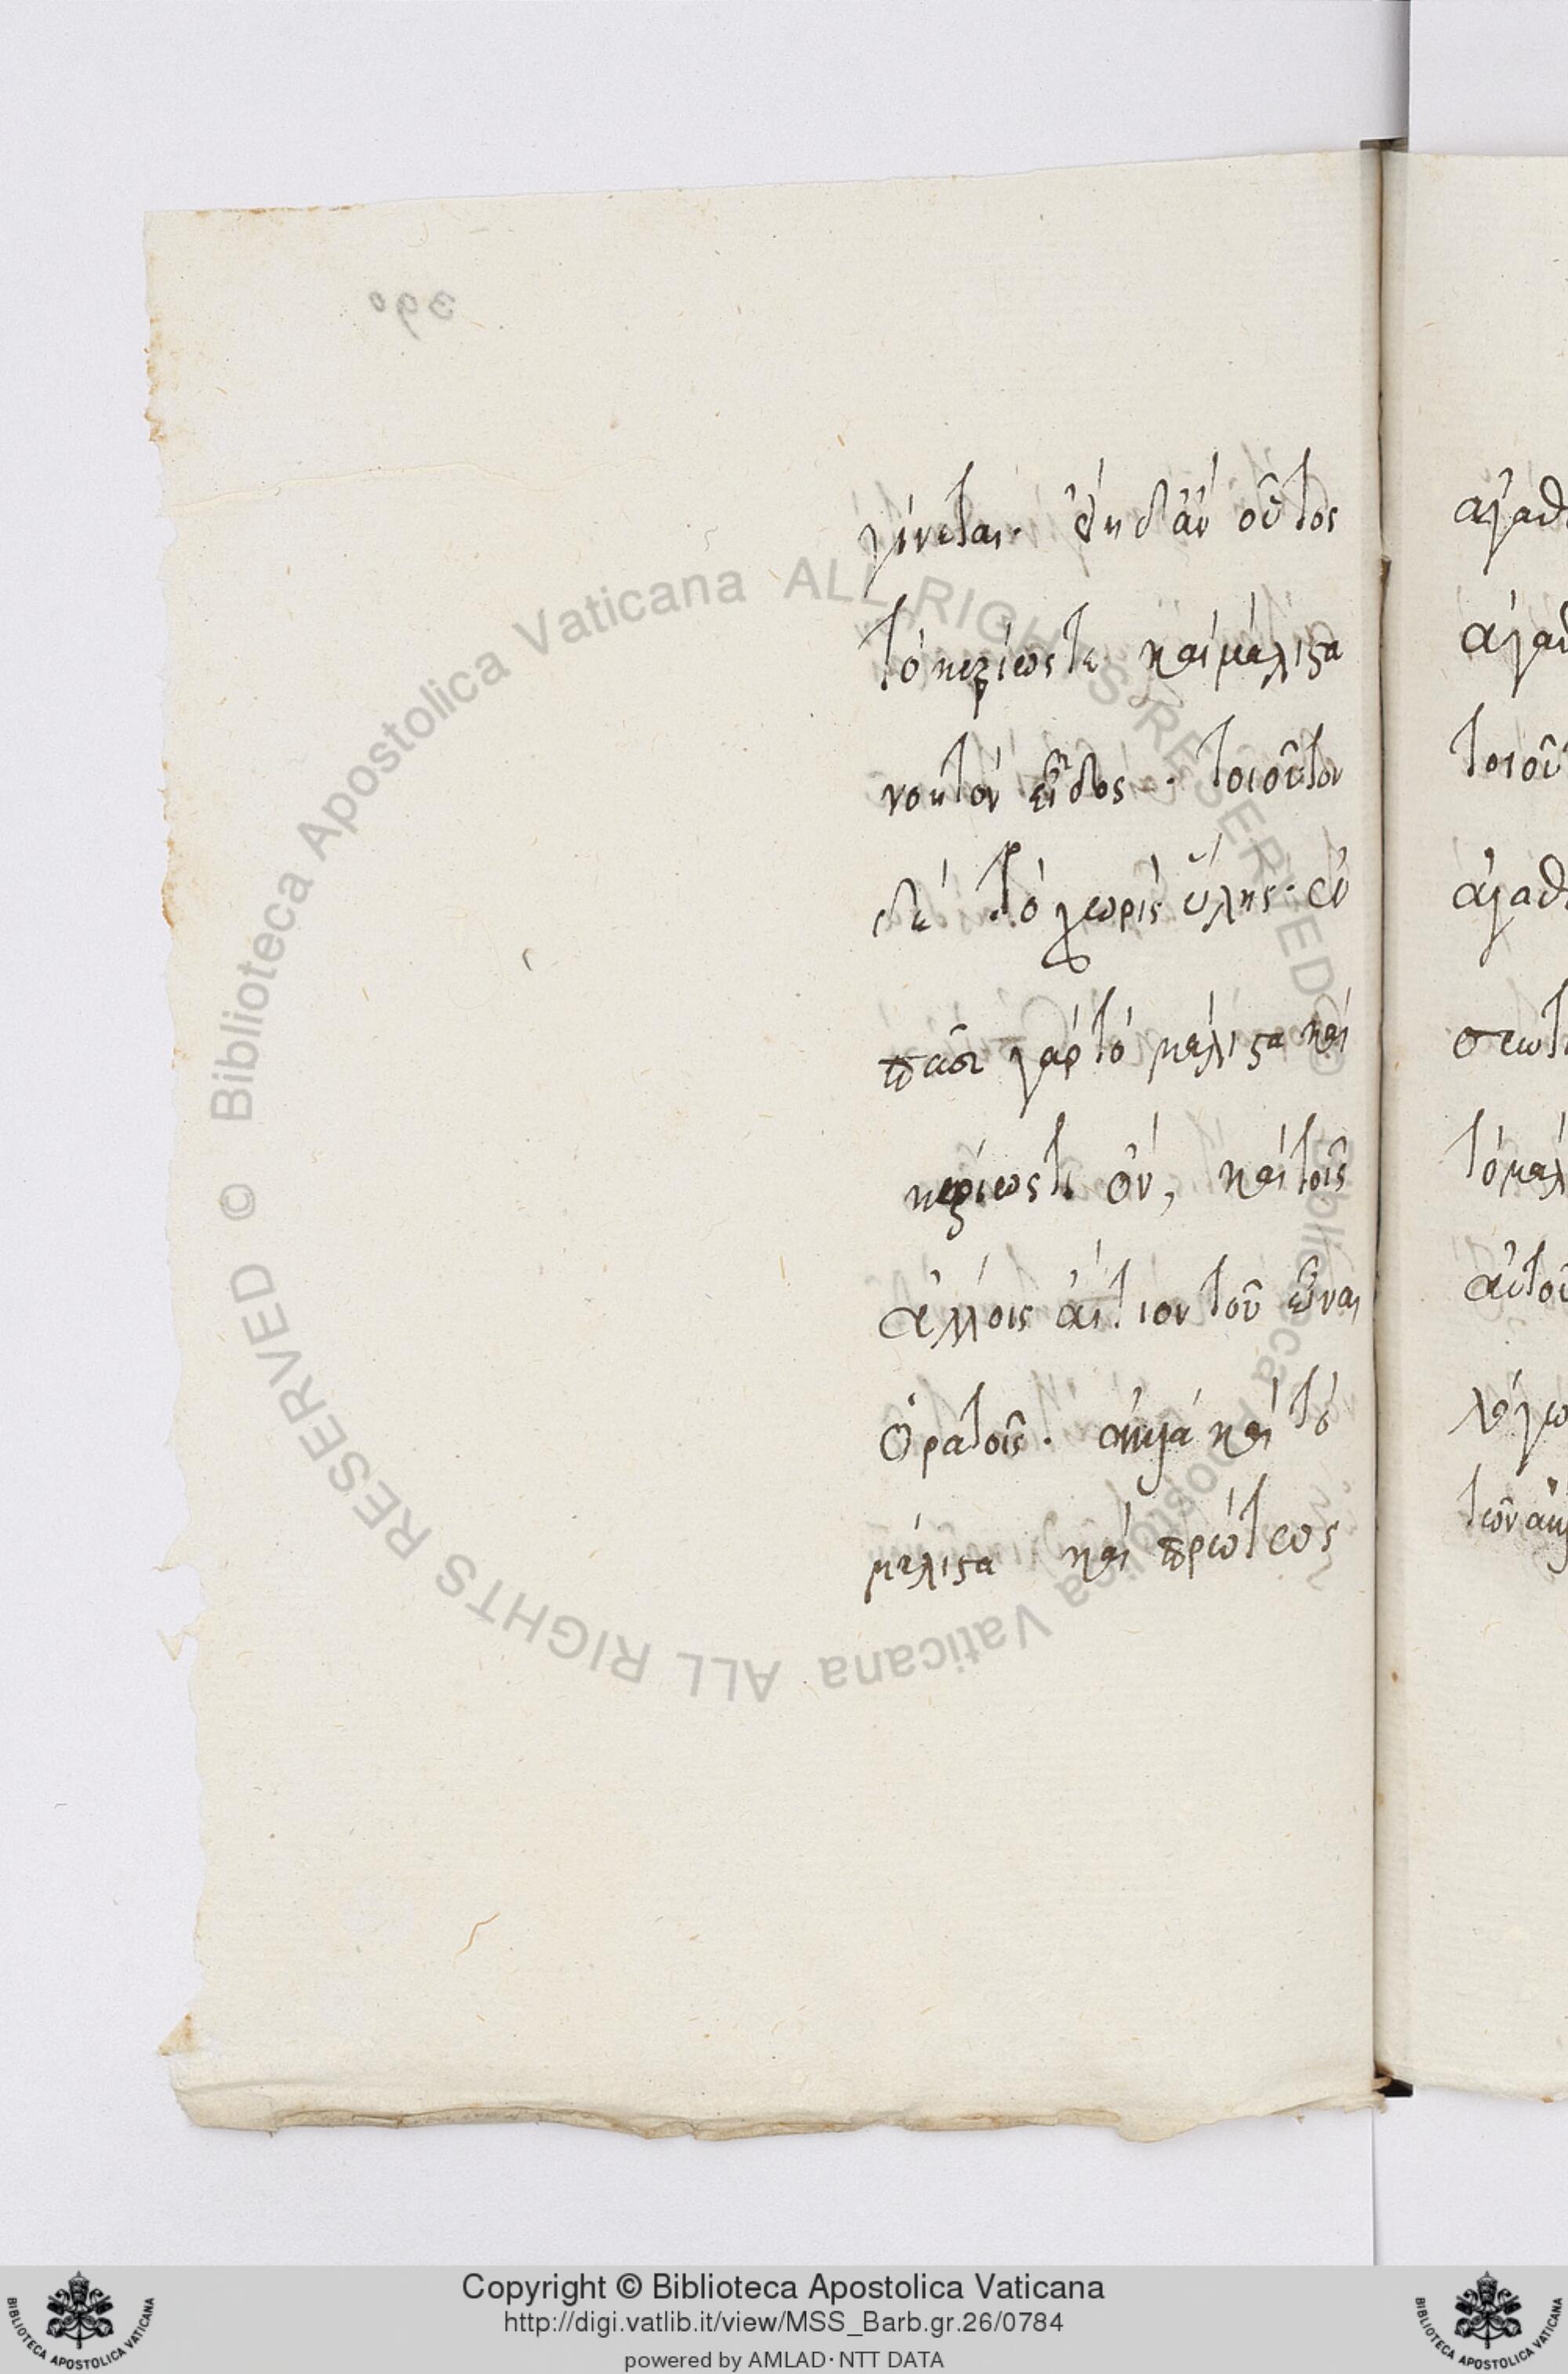 390
γίνεται· εἴη δ' ἂν οὗτος
τὸ κυρίως τε καὶ μάλιστα
νοητὸν εἶδος· τοιοῦτον
δὲ τὸ χωρὶς ὕλης· ἐν
πᾶσι γὰρ τὸ μάλιστα καὶ
κυρίως τι ὂν, καὶ τοῖς
ἄλλοις αἴτιον τοῦ εἶναι
ὁρατοῖς. ἀλλὰ καὶ τὸ
μάλιστα καὶ πρώτως
ἀγαθ
τοιοῦ
ἀγαθ
τὸ μαλ
αὐτοῦ
λέγω
Copyright © Biblioteca Apostolica Vaticana
http://digi.vatlib.it/view/MSS_Barb.gr.26/0784
powered by AMLAD·NTT DATA
BIBLIOTECA APOSTOLICA VATICANA
BIBLIOTECA APOSTOLICA VATICANA
© Biblioteca Apostolica Vaticana ALL RIGHTS RESERVED
© Biblioteca Apostolica Vaticana ALL RIGHTS RESERVED